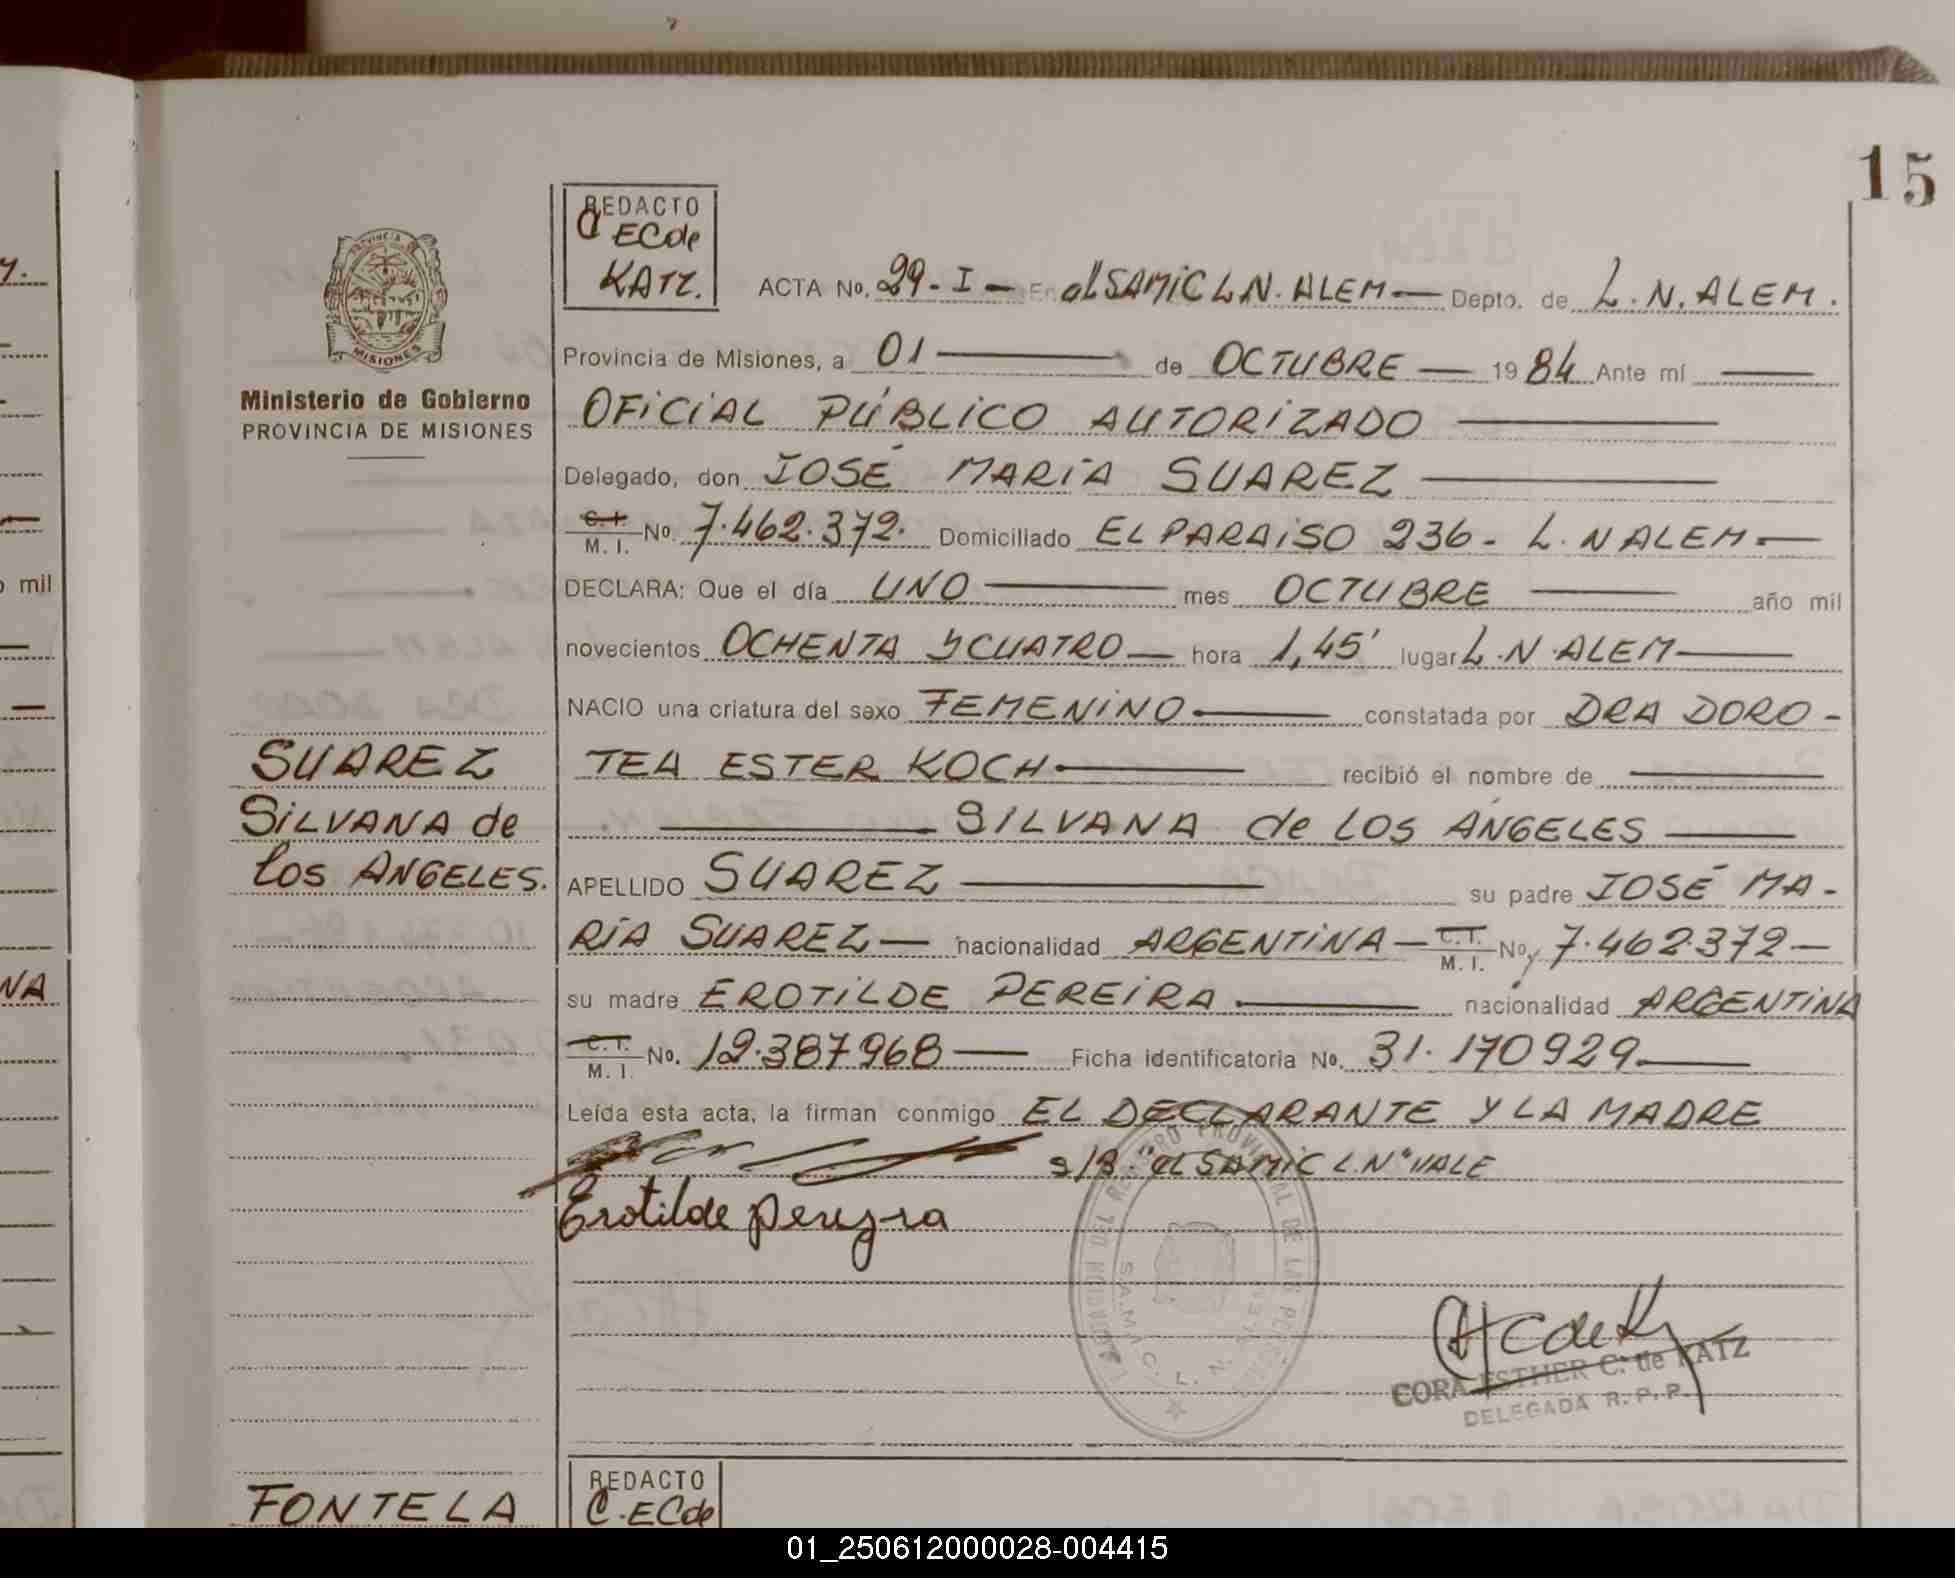 15
REDACTO
C ECde
KATZ.
ACTA No. 29-I- En el SAMIC L.N. ALEM — Depto. de L.N. ALEM.
PROVINCIA DE
MISIONES
Ministerio de Gobierno
PROVINCIA DE MISIONES
Provincia de Misiones, a 01 — de OCTUBRE — 1984 Ante mí —
OFICIAL PÚBLICO AUTORIZADO —
Delegado, don JOSÉ MARIA SUAREZ —
C. I.
M. I. No. 7.462.372. Domiciliado EL PARAISO 236 - L. N ALEM —
DECLARA: Que el día UNO — mes OCTUBRE — año mil
novecientos OCHENTA Y CUATRO — hora 1,45' lugar L.N. ALEM —
NACIO una criatura del sexo FEMENINO — constatada por DRA DORO-
TEA ESTER KOCH — recibió el nombre de —
— SILVANA de LOS ANGELES —
APELLIDO SUAREZ — su padre JOSÉ MA-
RÍA SUAREZ — nacionalidad ARGENTINA — C. I.
M. I. No. 7.462.372 — y
su madre EROTILDE PEREIRA — nacionalidad ARGENTINA
C. I.
M. I. No. 12.387968 — Ficha identificatoria No. 31.170929 —
Leída esta acta, la firman conmigo EL DECLARANTE Y LA MADRE
s/B: "el SAMIC L.N" VALE
Erotilde pereyra
SUAREZ
SILVANA de
los ANGELES.
DEL REGISTRO PROVINCIAL DE LAS PERSONAS
S.A.M.I.C. L. N. ALEM
CORA ESTHER C. de KATZ
DELEGADA R. P. P.
FONTELA
REDACTO
C. ECde
mil
NA
01_250612000028-004415